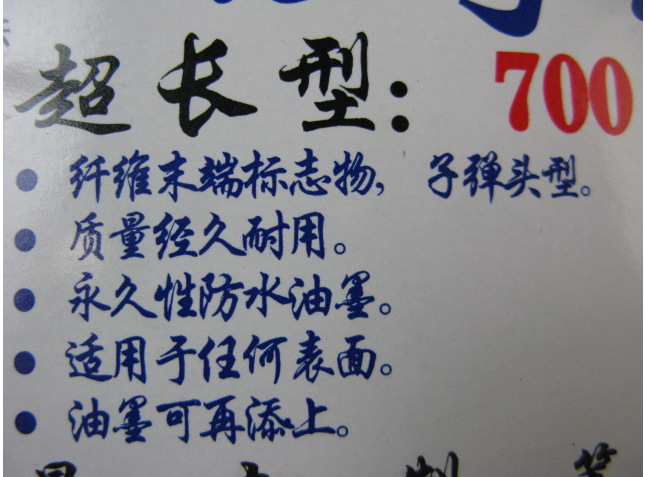 超长型：700
• 纤维末端标志物，子弹头型。
• 质量经久耐用。
• 永久性防水油墨。
• 适用于任何表面。
• 油墨可再添上。